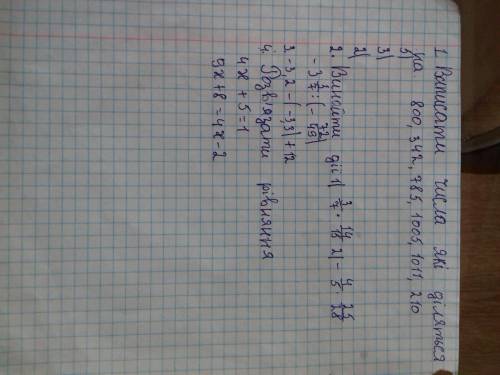 1. Виписати числа які діляться
на 800, 342, 785, 1005, 1011, 210
5)
3)
2)
2. Виконати дії 1) 3/7 · 14/18 2) - 4/5 · 25/28
- 3 1/7 : (- 22/49)
3. -3,2 - (-3,3) + 12
4. Розв'язати рівняння
4x + 5 = 1
9x + 8 = 4x - 2